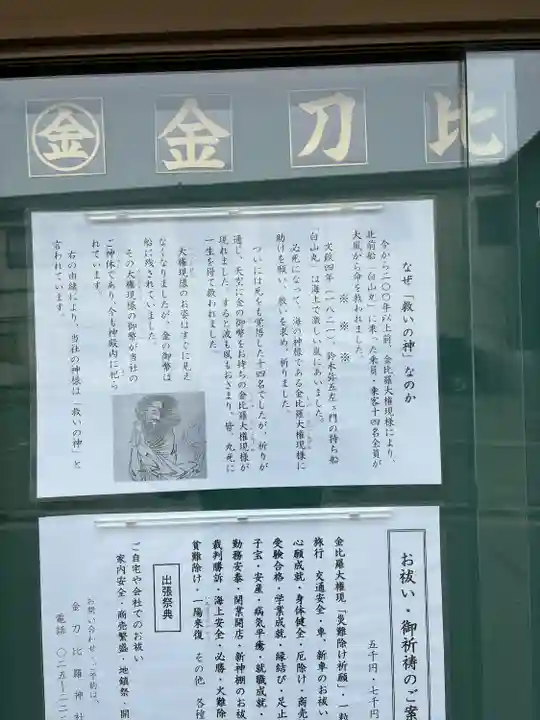 金 金 刀 比
なぜ「救いの神」なのか
今から二〇〇年以上前、金比羅大権現様により、
北前船「白山丸」に乗った乗員・乗客十四名全員が
大風から命を救われました。
※ ※ ※
文政四年(一八二一)、鈴木弥五左ェ門の持ち船
「白山丸」は海上で激しい嵐にあいました。
必死になって、海の神様である金比羅大権現様に
助けを願い、救いを求め、祈りました。
ついには死をも覚悟した十四名でしたが、祈りが
通じ、天空に金の御幣をお持ちの金比羅大権現様が
現れました。すると波も風もおさまり、皆、九死に
一生を得て救われました。
大権現様のお姿はすぐに見え
なくなりましたが、金の御幣は
船に残されていました。
その大権現様の御幣が当社の
ご神体であり、今も神殿内に祀ら
れています。
右の由緒により、当社の神様は「救いの神」と
言われています。
お祓い・御祈祷のご案
五千円・七千円
金比羅大権現「災難除け祈願」、一粒
旅行 交通安全・車、新車のお祓い
心願成就・身体健全・厄除け・商売
受験合格・学業成就・縁結び・足止
子宝・安産・病気平癒・就職成就・
勤務安泰・開業開店・新神棚のお祓
裁判勝訴・海上安全・必勝・火難除
貧難除け・一陽来復、その他 各種
出張祭典
ご自宅や会社でのお祓い
家内安全・商売繁盛・地鎮祭・開
お問い合わせ、ご予約は、
金刀比羅神社
電話 〇二五-二二